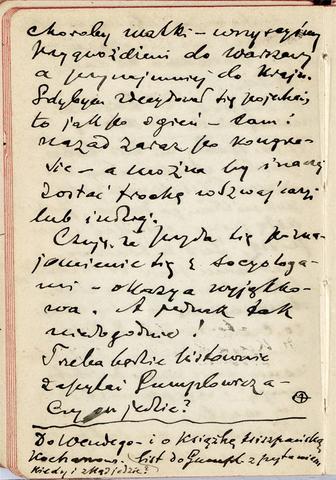 choroby matki – wszyscyśmy
przygwożdżeni do Warszawy
a przynajmniej do kraju.
Gdybym zdecydował się pojechać,
to jak po ogień – tam i
nazad zaraz po kongre-
sie – a można by inaczej
zostać trochę
lub indziej.
Czuję, że przyda się pozna-
jomienie się z socyologa-
mi – okazya wyjątko-
wa. A jednak tak
niedogodnie!
Trzeba będzie listownie
zapytać Gumplowicza –
czy on jedzie?
Do Wendego – i o książkę hiszpańską
Kochanows. List do Gumpl. z pytaniem
kiedy i skąd jedzie?